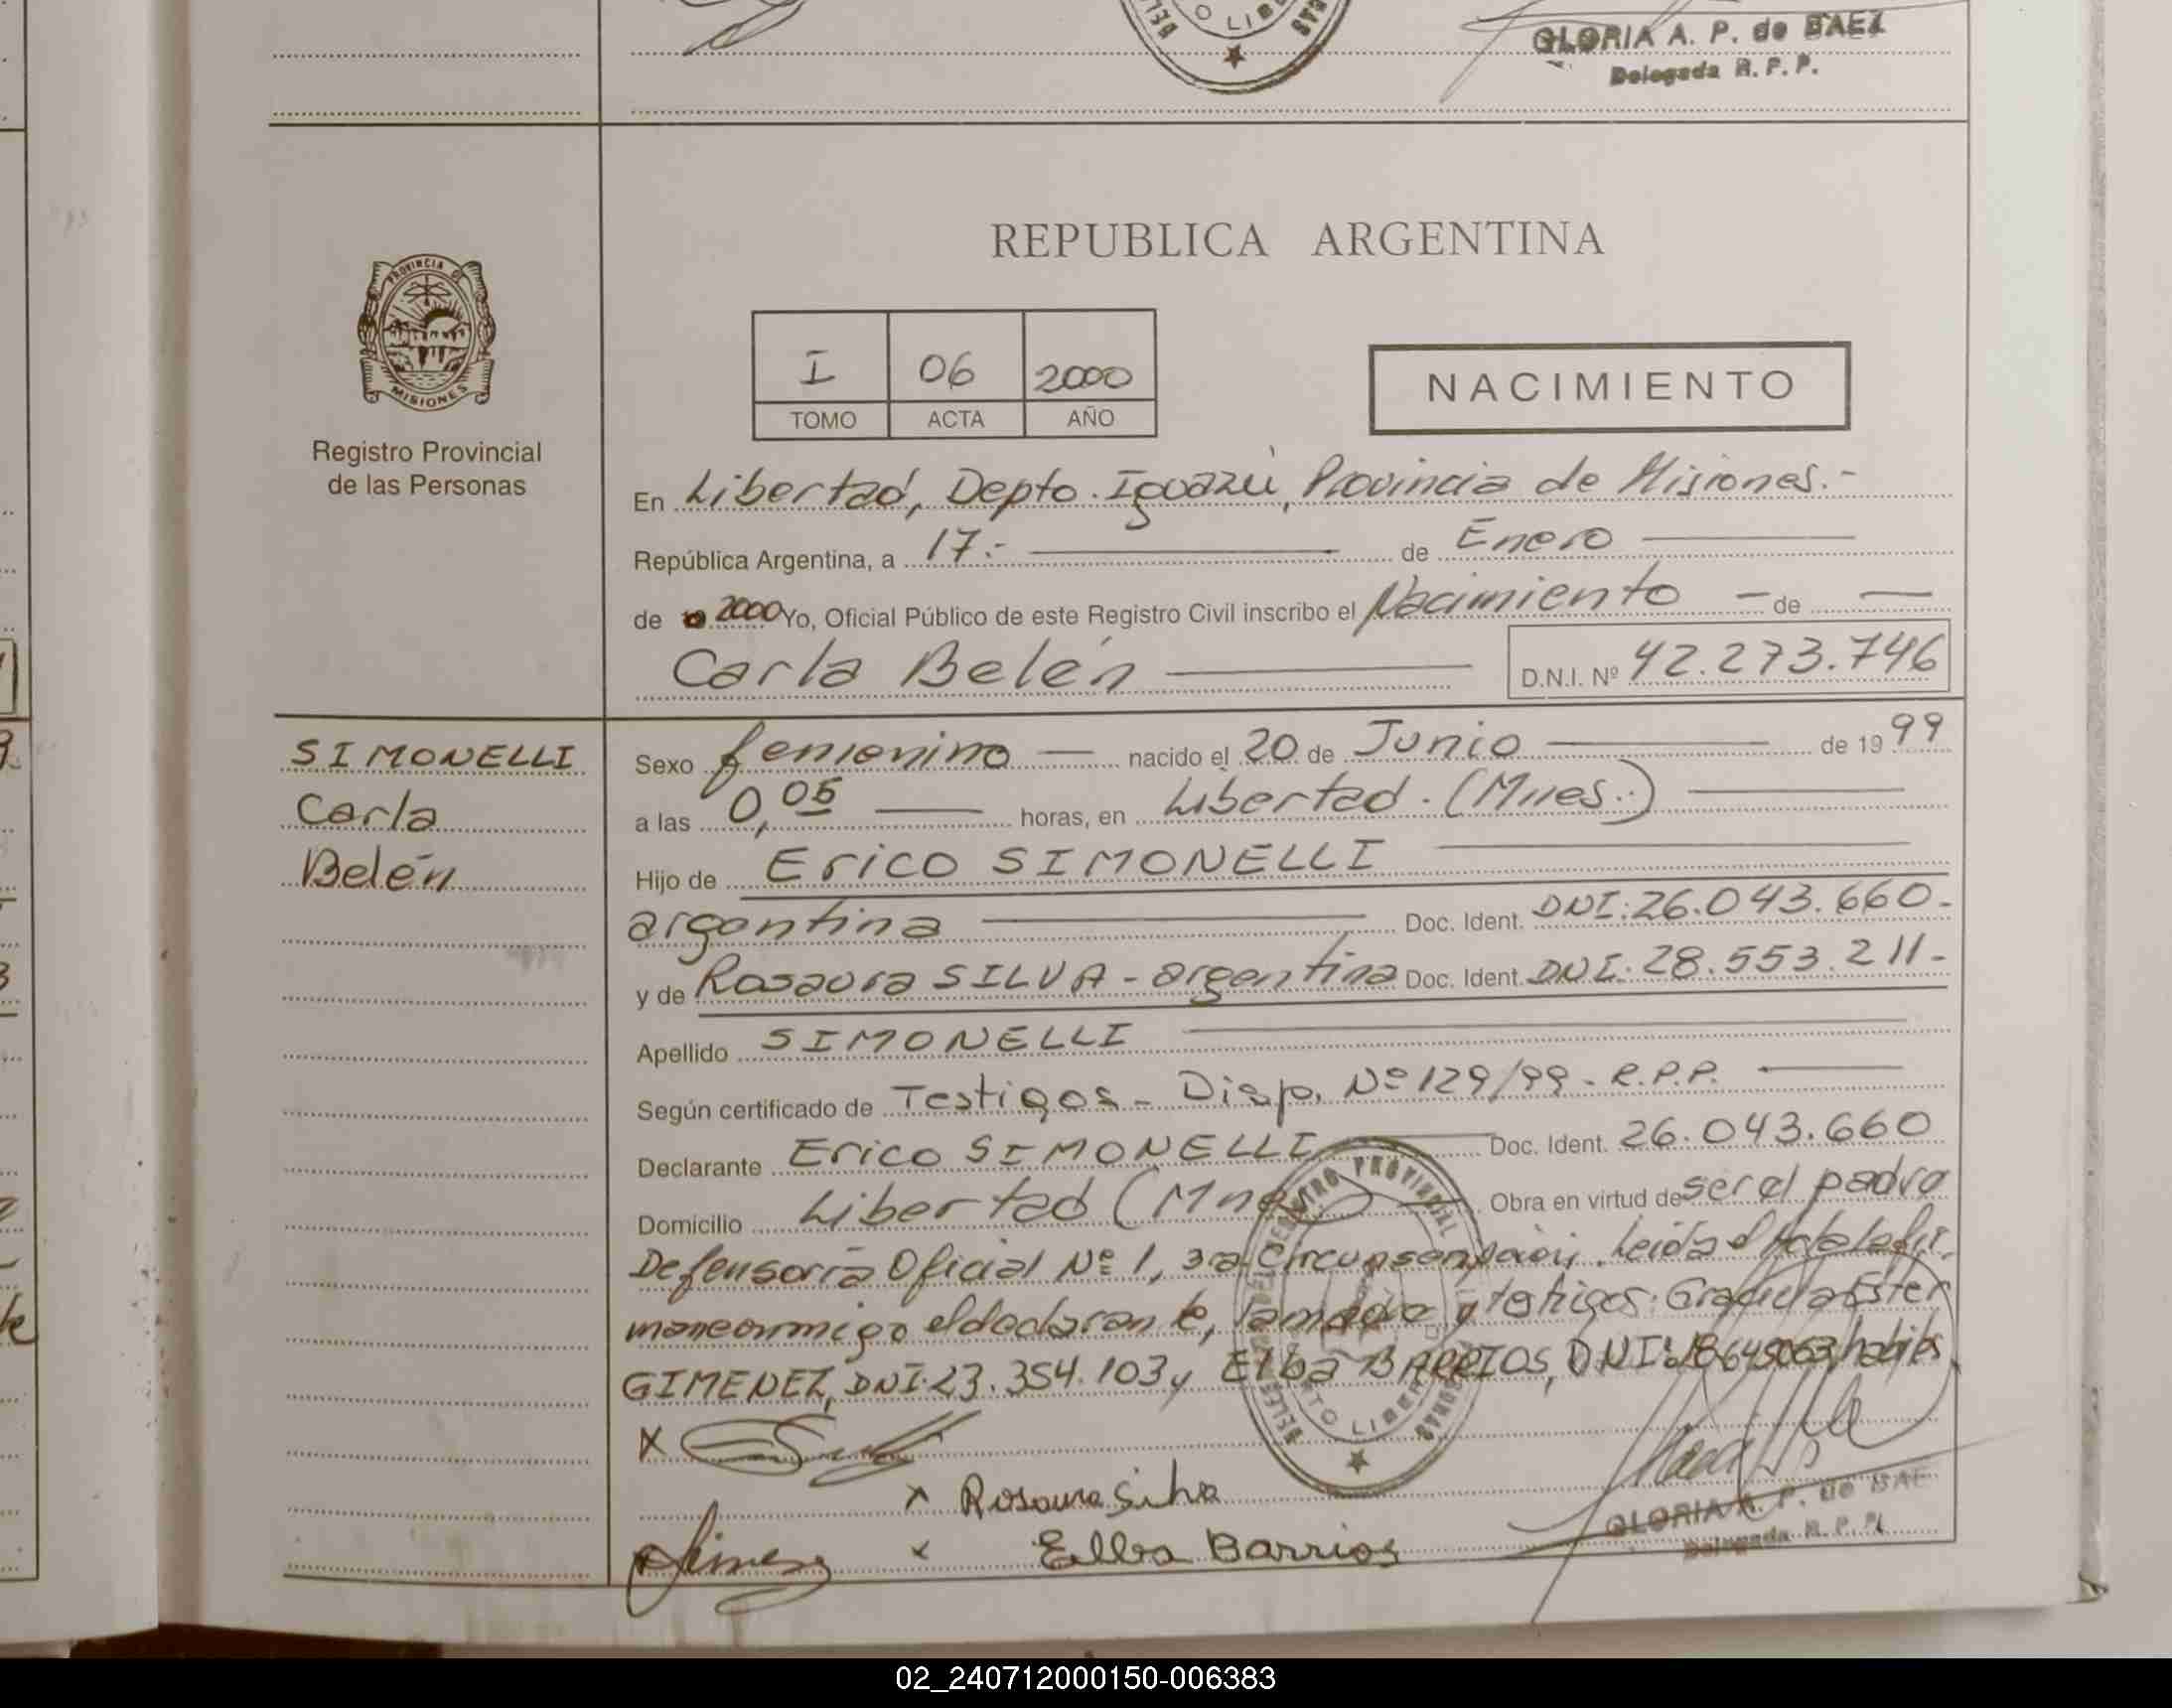 GLORIA A. P. de BAEZ
Delegada R. P. P.
PROVINCIA DE
MISIONES
Registro Provincial
de las Personas
REPUBLICA ARGENTINA
I 06 2000
TOMO ACTA AÑO
NACIMIENTO
En Libertad, Depto. Iguazú, Provincia de Misiones.-
República Argentina, a 17.- de Enero
de 2000 Yo, Oficial Público de este Registro Civil inscribo el Nacimiento - de
Carla Belén D.N.I. Nº 42.273.746
SIMONELLI
Carla
Belén
Sexo femenino nacido el 20 de Junio de 1999
a las 0,05 horas, en Libertad. (Mnes.)
Hijo de Erico SIMONELLI
argentina Doc. Ident. DNI: 26.043.660-
y de Rosaura SILVA - argentina Doc. Ident. DNI. 28.553.211-
Apellido SIMONELLI
Según certificado de Testigos - Disp. Nº 129/99 - R.P.P.
Declarante Erico SIMONELLI Doc. Ident. 26.043.660
Domicilio Libertad (Mnes) Obra en virtud de ser el padre
Defensoría Oficial Nº 1, 3ra Leída
el declarante, la madre y testigos: Graciela Ester
GIMENEZ, DNI. 23.354.103 y Elba BARRIOS, DNI: habiles
x
x Rosaura Silva
Gimenez x Elba Barrios
GLORIA A. P. de BAE
Delegada R. P. P.
02_240712000150-006383